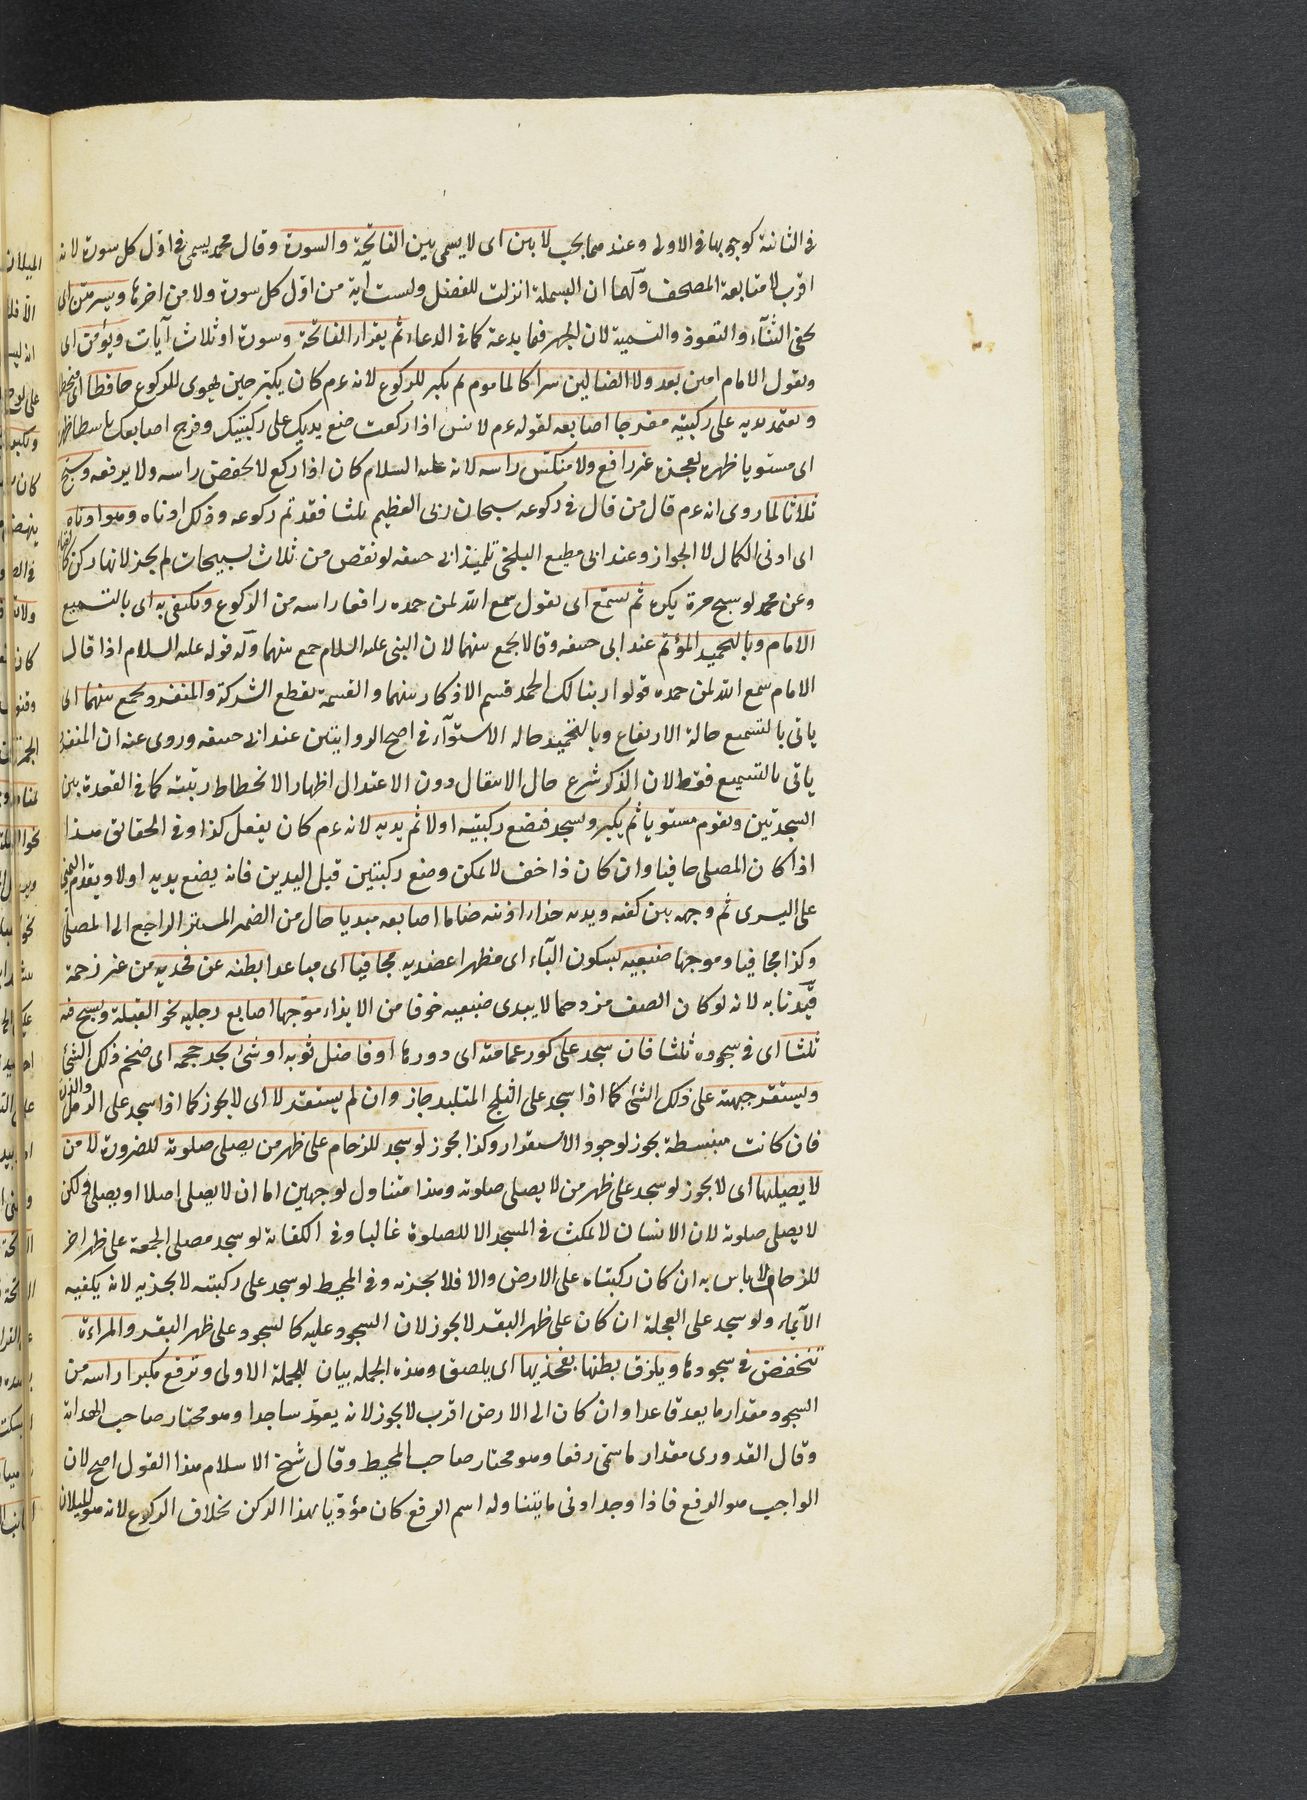 في الثانية كوجوبها في الاولى وعندهما يجب لا بين اى لا يسمى بين الفاتحة والسورة وقال محمد يسمى في اوّل كل سورة لانه
اقرب لامتابعة المصحف ولهما ان البسملة انزلت للفصل وليست آية من اوّل كل سورة ولا من اخرها ويسرهن اى
يخفى الثنآء والتعوذ والتسمية لان الجهر فيها بدعة كما في الدعاء ثم يقرأ الفاتحة وسورة او ثلاث آيات ويؤمن اى
ويقول الامام امين بعد ولا الضالين سرا كالماموم ثم يكبر للركوع لانه عم كان يكبّر حين يهوى للركوع خافضا اى منحطا
ويعتمد بيديه على ركبتيه مفرجا اصابعه لقوله عم لانس اذا ركعت ضع يديك على ركبتيك وفرج اصابعك باسطا ظهره
اى مستويا ظهره بعجزه غير رافع ولا منكس راسه لانه عليه السلام كان اذا ركع لا يخفض راسه ولا يرفعه وسبّح
ثلاثا لما روى انه عم قال من قال في ركوعه سبحان ربى العظيم ثلثا فقد تم ركوعه وذلك ادناه وهو ادناه
اى ادنى الكمال لا الجواز وعند ابى مطيع البلخى تلميذ ابى حنيفه لو نقص من ثلاث تسبيحات لم يجز لانها ركن كالقيام
وعن محمد لو سبح مرة يكره ثم يسمّع اى يقول سمع الله لمن حمده رافعا راسه من الركوع ويكتفى به اى بالتسميع
الامام وبالتحميد المؤتم عند ابى حنيفه وقالا يجمع بينهما لان النبى عليه السلام جمع بينهما وله قوله عليه السلام اذا قال
الامام سمع الله لمن حمده قولوا ربنا لك الحمد قسم الاذكار بينهما والقسمة تقطع الشركة والمنفرد يجمع بينهما اى
ياتى بالتسميع حالة الارتفاع وبالتحميد حالة الاستوآء في اصح الروايتين عند ابى حنيفه وروى عنه ان المنفرد
ياتى بالتسميع فقط لان الذكر شرع حال الانتقال دون الاعتدال اظهارا لانحطاط رتبته كما في القعدة بين
السجدتين ويقوم مستويا ثم يكبر ويسجد فيضع ركبتيه اولا ثم يديه لانه عم كان يفعل كذا وفي الحقائق هذا
اذا كان المصلى حافيا وان كان ذا خف لا يمكن وضع ركبتين قبل اليدين فانه يضع يديه اولا ويقدم اليمنى
على اليسرى ثم وجهه بين كفيه ويديه حذاء اذنيه ضاما اصابعه مبديا حال من الضمير المستتر الراجع الى المصلى
وكذا مجافيا وموجها ضبعيه بسكون البآء اى مظهرا عضديه مجافيا اى مباعدا بطنه عن فخذيه من غير زحمة
قيّدنا به لانه لو كان الصف مزدحما لا يبدى ضبعيه خوفا من الايذاء موجها اصابع رجليه نحو القبلة ويسبح فيه
ثلثا اى في سجوده ثلثا فان سجد على كور عمامته اى دورها او فاضل ثوبه او شئ يجد حجمه اى ضخم ذلك الشئ
ويستقر جبهته على ذلك الشئ كما اذا سجد على الثلج المتلبد جاز وان لم يستقر لا اى لا يجوز كما اذا سجد على الرمل والذرة
فان كانت منبسطة يجوز لوجود الاستقرار وكذا يجوز لو سجد للزحام على ظهر من يصلى صلوته للضرورة لا من
لا يصليها اى لا يجوز لو سجد على ظهر من لا يصلى صلوته وهذا متناول لوجهين اما ان لا يصلى اصلا او يصلى ولكن
لا يصلى صلوته لان الانسان لا يمكث في المسجد الا للصلوة غالبا وفي الكفاية لو سجد مصلى الجمعة على ظهر اخر
للزحام لا باس به ان كان ركبتاه على الارض والا فلا يجزيه وفي المحيط لو سجد على ركبتيه لا يجزيه لانه يكفيه
الايماء ولو سجد على العجلة ان كان على ظهر البقر لا يجوز لان السجود عليه كالسجود على ظهر البقر والمراءة
تنخفض في سجودها ويلزق بطنها بفخذيها اى يلصق وهذه الجملة بيان للجملة الاولى وترفع مكبرا راسه من
السجود مقدار ما يعد قاعدا وان كان الى الارض اقرب لا يجوز لانه يعد ساجدا وهو مختار صاحب الهداية
وقال القدورى مقدار ما سمى رفعا وهو مختار صاحب المحيط وقال شيخ الاسلام هذا القول اصح لان
الواجب هو الرفع فاذا وجد ادنى ما يتناوله اسم الرفع كان مؤدّيا لهذا الركن بخلاف الركوع لانه هو الميلان